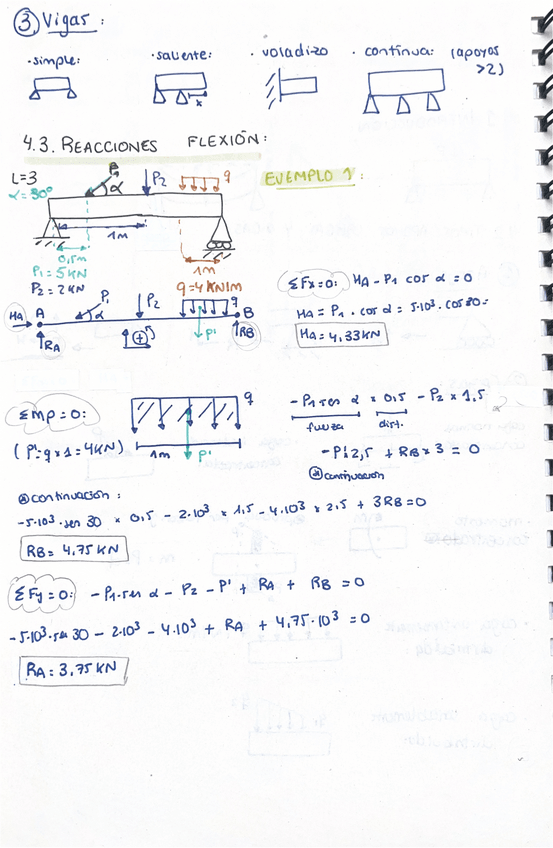 ③ Vigas:
· simple: · saliente: · voladizo · continua: (apoyos >2)
x
4.3. REACCIONES FLEXIÓN:
L=3
α=30°
P1 α P2 q
EJEMPLO 1:
1m
0,5m 1m
P1=5KN
P2=2KN q=4KN/m
ΣFx=0: HA-P1 cos α=0
HA A P1 α P2 q B
HA=P1·cos α=5·10³·cos30=
RA + P' RB
HA=4,33KN
ΣMP=0: q
-P1 sen α × 0,5 - P2 × 1,5
fuerza dist.
(P'=q×1=4KN) 1m P'
-P'·2,5 + RB×3 = 0
⊛ continuación
⊛ continuación:
-5·10³·sen 30 × 0,5 - 2·10³ × 1,5 - 4·10³ × 2,5 + 3RB=0
RB=4,75KN
ΣFy=0: -P1·sen α - P2 - P' + RA + RB = 0
-5·10³·sen 30 - 2·10³ - 4·10³ + RA + 4,75·10³ = 0
RA=3,75KN